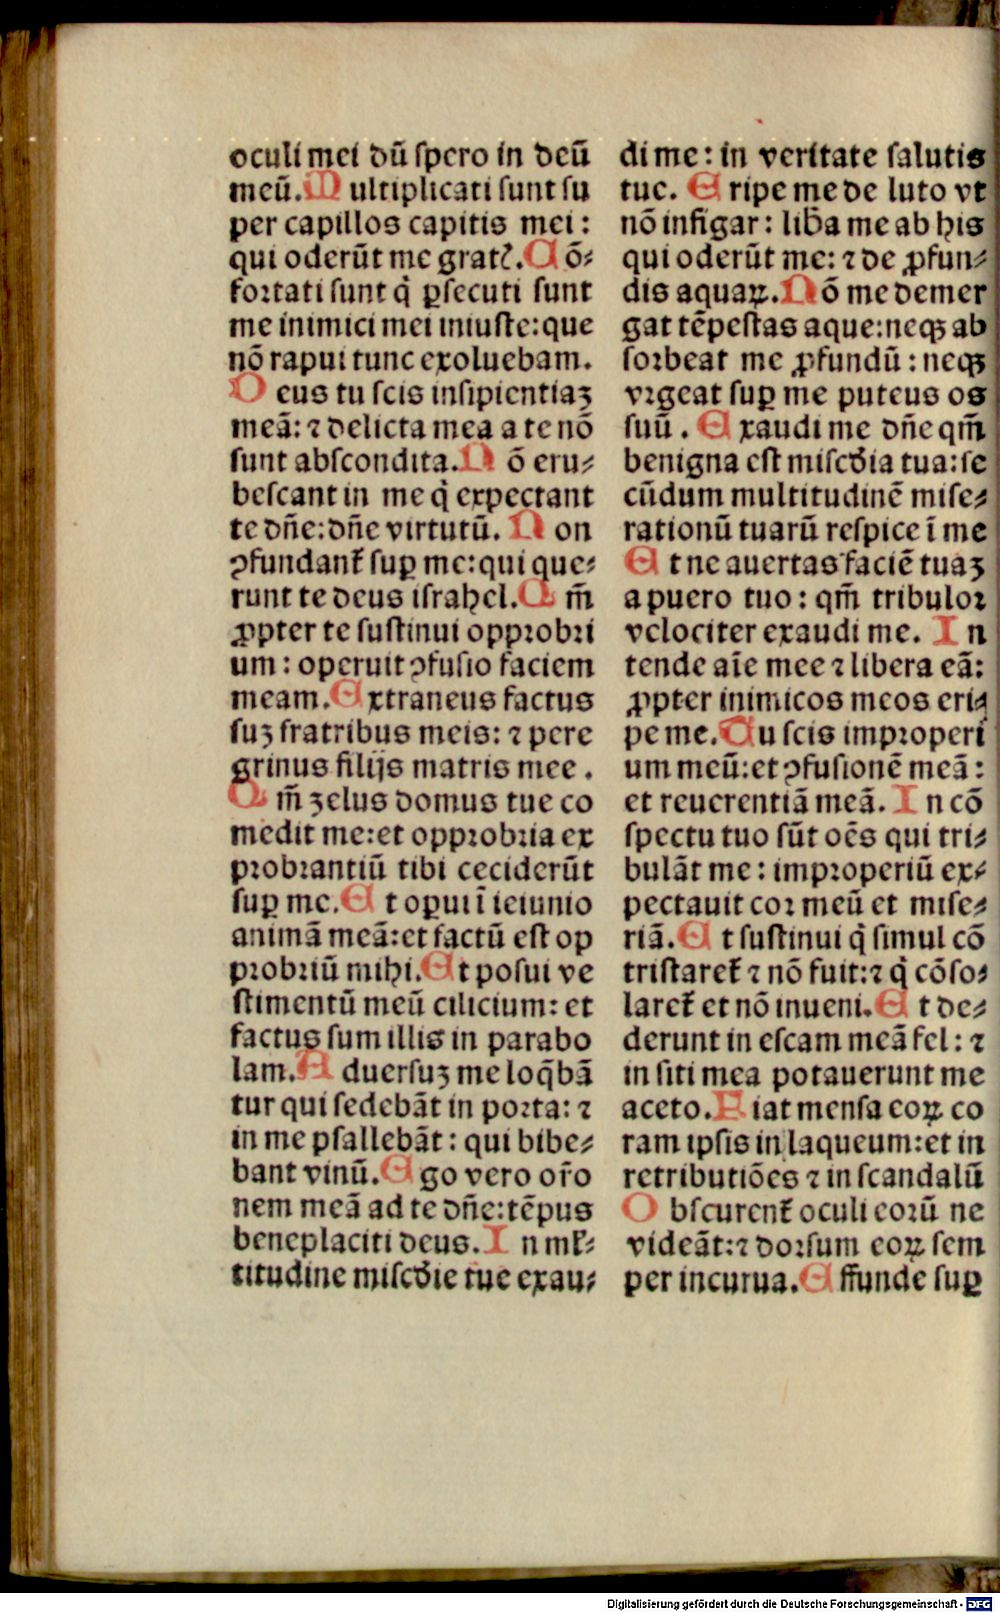 oculi mei dū spero in deū
meū. Multiplicati sunt su
per capillos capitis mei:
qui oderūt me grat̄. Cō-
fortati sunt q̄ ꝑsecuti sunt
me inimici mei iniuste: que
nō rapui tunc exoluebam.
Deus tu scis insipientiaꝫ
meā: ⁊ delicta mea a te nō
sunt abscondita. Nō eru-
bescant in me q̄ expectant
te dn̄e: dn̄e virtutū. Non
ꝯfundant̄ suꝑ me: qui que-
runt te deus israhel. Qm̄
ꝓpter te sustinui opprobri
um: operuit ꝯfusio faciem
meam. Extraneus factus
suꝫ fratribus meis: ⁊ pere
grinus filijs matris mee.
Qm̄ zelus domus tue co
medit me: et opprobria ex
probrantiū tibi ceciderūt
suꝑ me. Et oꝑui ī ieiunio
animā meā: et factū est op
probriū mihi. Et posui ve
stimentū meū cilicium: et
factus sum illis in parabo
lam. Aduersuꝫ me loq̄bā
tur qui sedebāt in porta: ⁊
in me psallebāt: qui bibe-
bant vinū. Ego vero or̄o
nem meā ad te dn̄e: tēpus
beneplaciti deus. In ml̄-
titudine misc̄die tue exau-
di me: in veritate salutis
tue. Eripe me de luto vt
nō infigar: lib̄a me ab his
qui oderūt me: ⁊ de ꝓfun-
dis aquaꝝ. Nō me demer
gat tēpestas aque: neqꝫ ab
sorbeat me ꝓfundū: neqꝫ
vrgeat suꝑ me puteus os
suū. Exaudi me dn̄e qm̄
benigna est misc̄dia tua: se
cūdum multitudinē mise-
rationū tuarū respice ī me
Et ne auertas faciē tuaꝫ
a puero tuo: qm̄ tribulor
velociter exaudi me. In
tende aīe mee ⁊ libera eā:
ꝓpter inimicos meos eri-
pe me. Tu scis improperi
um meū: et ꝯfusionē meā:
et reuerentiā meā. In cō
spectu tuo sūt oēs qui tri-
bulāt me: improperiū ex-
pectauit cor meū et mise-
riā. Et sustinui q̄ simul cō
tristaret̄ ⁊ nō fuit: ⁊ q̄ cōso-
laret̄ et nō inueni. Et de-
derunt in escam meā fel: ⁊
in siti mea potauerunt me
aceto. Fiat mensa eoꝝ co
ram ipsis in laqueum: et in
retributiōes ⁊ in scandalū
Obscurent̄ oculi eorū ne
videāt: ⁊ dorsum eoꝝ sem
per incurua. Effunde suꝑ
Digitalisierung gefördert durch die Deutsche Forschungsgemeinschaft - DFG